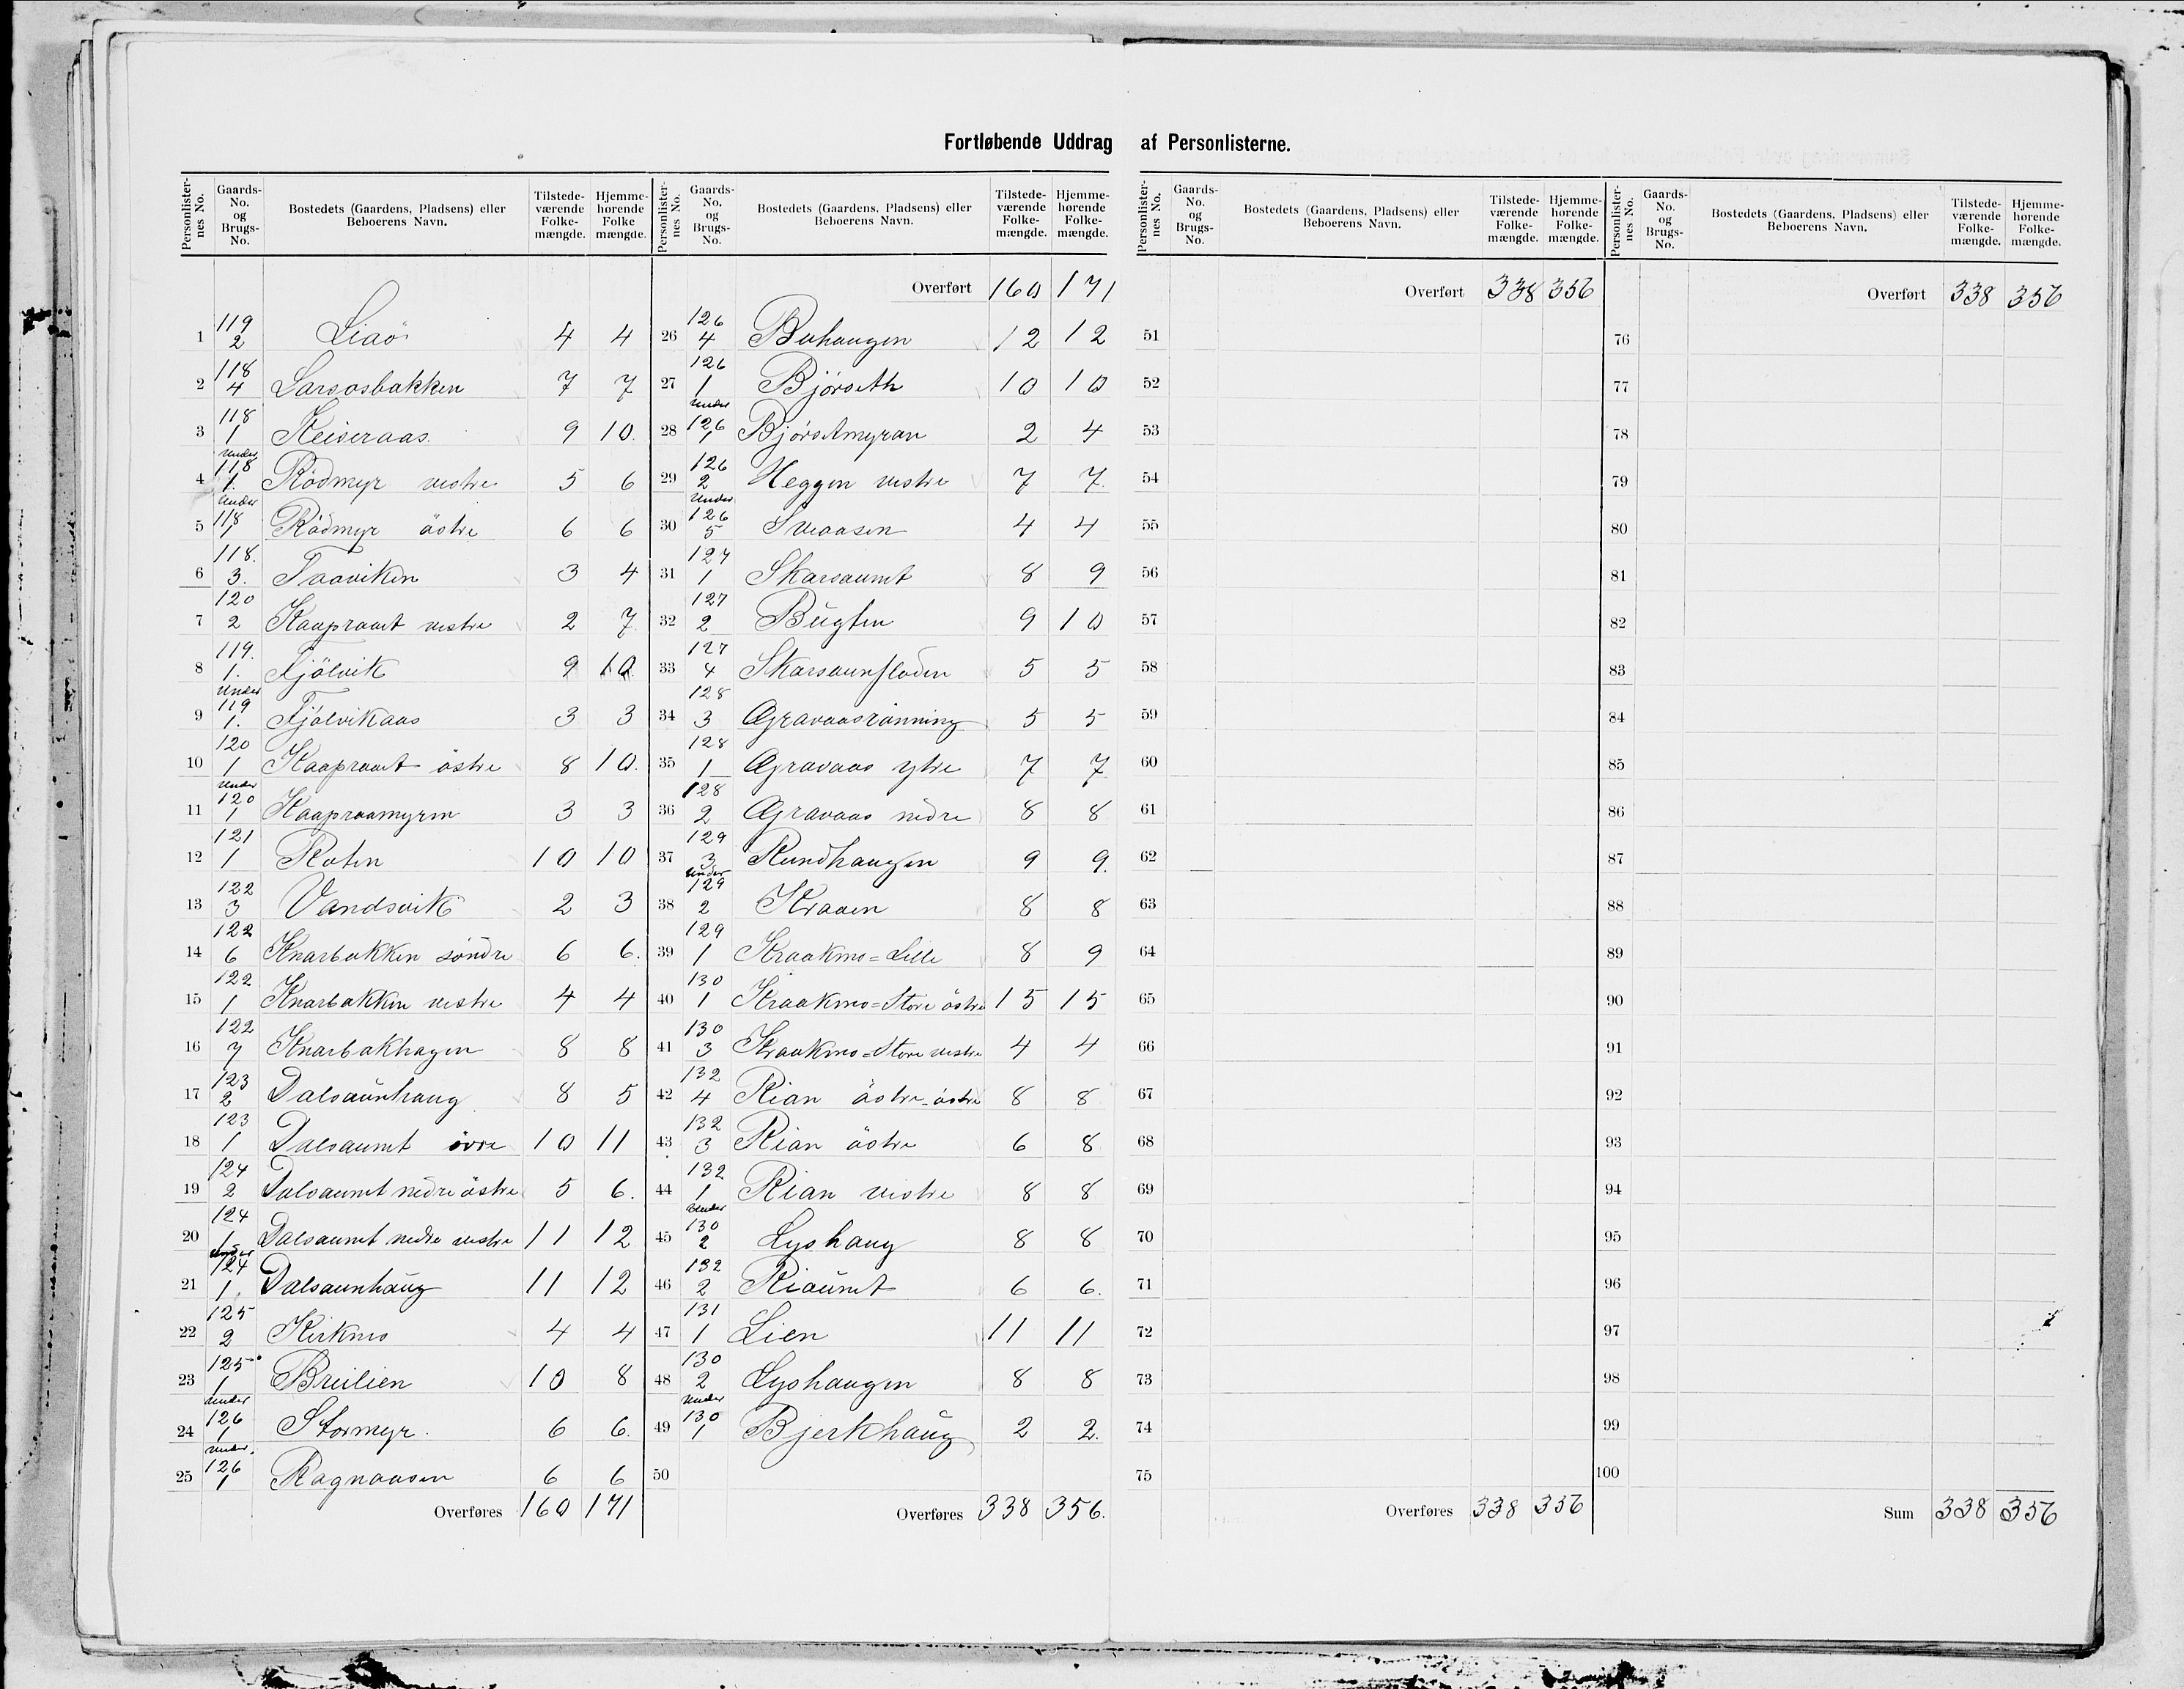 Fortløbende Uddrag af Personlisterne.
Personlister-nes No. Gaards-No. og Brugs-No. Bostedets (Gaardens, Pladsens) eller Beboerens Navn. Tilstede-værende Folke-mængde. Hjemme-hørende Folke mængde.
1 119 2 Liaö 4 4
2 118 4 Sarsosbakken 7 7
3 118 1 Keiseraas 9 10
4 under 118 1 Rödmyr vestre 5 6
5 under 118 1 Rödmyr östre 6 6
6 118 3 Taaviken 3 4
7 120 2 Kaapraat vestre 2 7
8 119 1 Fjölvik 9 10
9 under 119 1 Fjölvikaas 3 3
10 120 1 Kaapraat östre 8 10
11 under 120 1 Kaapraamyren 3 3
12 121 1 Roten 10 10
13 122 3 Vandsvik 2 3
14 122 6 Knarbakken söndre 6 6
15 122 1 Knarbakken vestre 4 4
16 122 7 Knarbakhagen 8 8
17 123 2 Dalsaunhaug 8 5
18 123 1 Dalsaunet övre 10 11
19 124 2 Dalsaunet nedre östre 5 6
20 124 1 Dalsaunet nedre vestre 11 12
21 under 124 1 Dalsaunhaug 11 12
22 125 2 Kirkmo 4 4
23 125 1 Breilien 10 8
24 under 126 1 Stormyr 6 6
25 under 126 1 Ragnaasen 6 6
Overføres 160 171
Personlister-nes No. Gaards-No. og Brugs-No. Bostedets (Gaardens, Pladsens) eller Beboerens Navn. Tilstede-værende Folke-mængde. Hjemme-hørende Folke-mængde.
Overført 160 171
26 126 4 Buhaugen 12 12
27 126 1 Björseth 10 10
28 under 126 1 Björsetmyran 2 4
29 126 2 Heggen vestre 7 7
30 under 126 5 Sveaasen 4 4
31 127 1 Skarsaunet 8 9
32 127 2 Bugten 9 10
33 127 4 Skarsaunfloden 5 5
34 128 3 Gravaasrönning 5 5
35 128 1 Gravaas ytre 7 7
36 128 2 Gravaas nedre 8 8
37 129 3 Rundhaugen 9 9
38 under 129 2 Kraaen 8 8
39 129 1 Kraakmo=Lille 8 9
40 130 1 Kraakmo=Store östre 15 15
41 130 3 Kraakmo=Store vestre 4 4
42 132 4 Rian östre-östre 8 8
43 132 3 Rian östre 6 8
44 132 1 Rian vestre 8 8
45 under 130 2 Lyshaug 8 8
46 132 2 Riaunet 6 6
47 131 1 Lien 11 11
48 130 2 Lyshaugen 8 8
49 under 130 1 Bjerkhaug 2 2
50
Overføres 338 356
Personlister-nes No. Gaards-No. og Brugs-No. Bostedets (Gaardens, Pladsens) eller Beboerens Navn. Tilstede-værende Folke-mængde. Hjemme-hørende Folke-mængde.
Overført 338 356
51
52
53
54
55
56
57
58
59
60
61
62
63
64
65
66
67
68
69
70
71
72
73
74
75
Overføres 338 356
Personlister-nes No. Gaards-No. og Brugs-No. Bostedets (Gaardens, Pladsens) eller Beboerens Navn. Tilstede-værende Folke-mængde. Hjemme-hørende Folke-mængde.
Overført 338 356
76
77
78
79
80
81
82
83
84
85
86
87
88
89
90
91
92
93
94
95
96
97
98
99
100
Sum 338 356